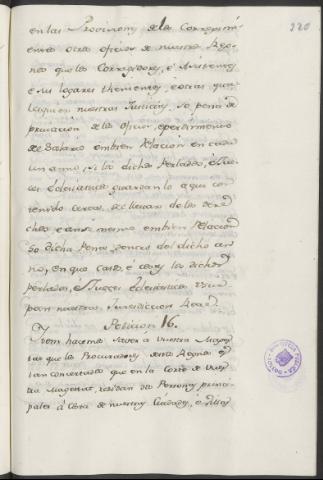 en las Provisions de los Corregim
entos otros oficios de nuestros Rey
nos que los Corregidores, é Asistentes
é sus logares thenientes, é otras qua
lesquier nuestras Justicias, so pena de
privacion de los oficios, é perdimiento
de Salario embien Relacion en cada
un año, si los dichos Perlados, é Jue
ces Eclesiasticos guardan lo aqui con
tenido cerca de llevar de los dere
chos é ansi mesmo embien Relacion
so dicha Pena dentro del dicho a
ño, en que casos, é cosas los dichos
Perlados, é Jueces Eclesiasticos usur
pan nuestra Jurisdiccion Real.
Peticion 16.
Item hacemos saver a Vuestra Mages
tad que los Procuradores destos Reynos es
tan concertados que en la Corte de Vues
tra Magestad, residan dos Personas princi
pales á costa de nuestras Ciudades, é Villas
320